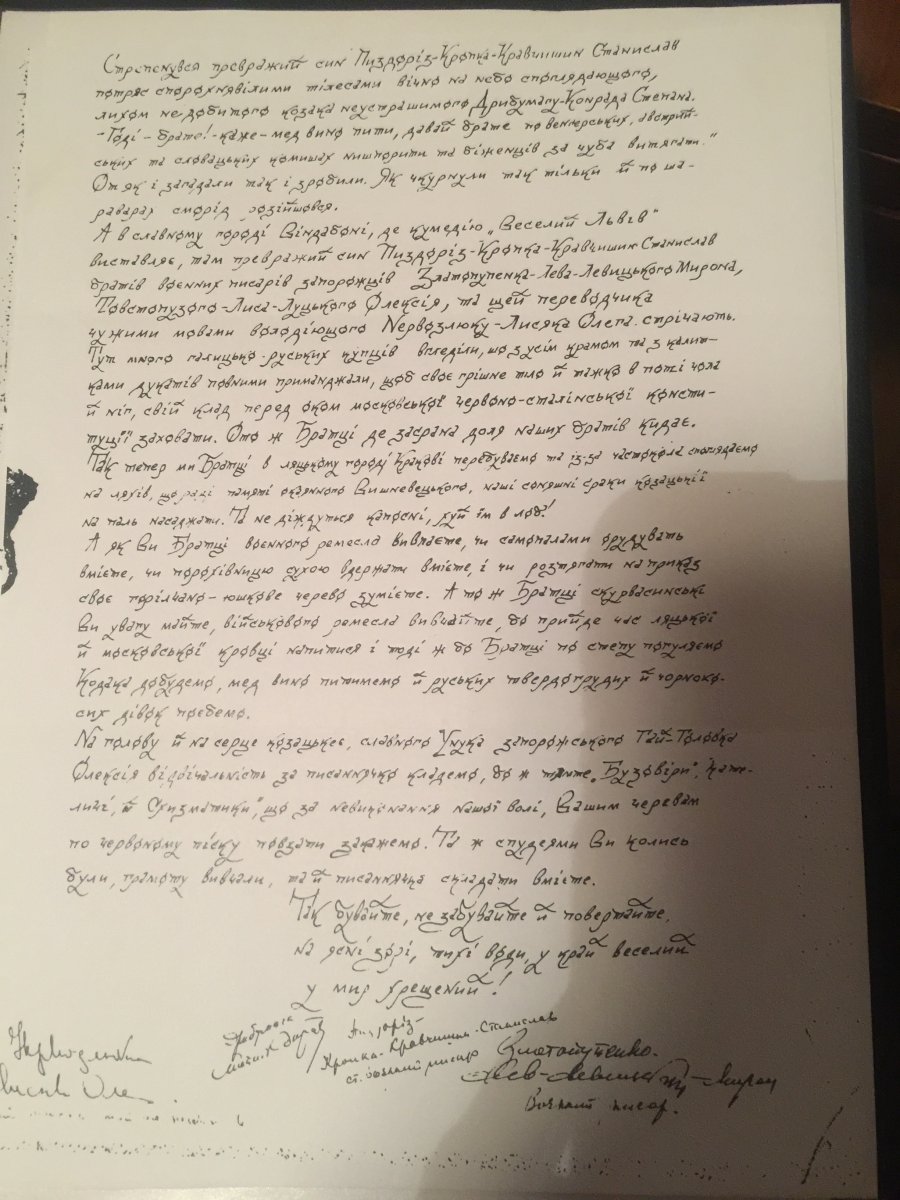 Стрепенувся превражий син Пиздоріз-Кропка-Кравчишин Станислав
потряс спорохнявілими тілесами вічно на небо споглядающого,
лихом недобитого козака неустрашимого Дрибумагу-Конрада Степана.
"Годі – брате! – каже – мед вино пити, давай брате по венгерських, австрій-
ських та словацьких комишах нишпорити та біженців за чуба витягати."
От як і загадали так і зробили. Як чкурнули так тільки й по ша-
раварах сморід розійшовся.
А в славному городі Віндабоні, де кумедію „Веселий Львів"
виставляє, там превражий син Пиздоріз-Кропка-Кравчишин Станислав
братів воєнних писарів запорожців Златопупенка-Лева-Левицького Мирона,
Товстопузого-Лиса-Луцького Олексія, та щей переводчика
чужими мовами володіющого Nервозлюку-Лисяка Олега стрічають.
Тут много галицько-руських купців вгледіли, шо з усім крамом та з калит-
ками дукатів повними приманджали, щоб своє грішне тіло й тяжко в поті чола
й ніг, свій клад перед оком московської червоно-сталінської консти-
туції заховати. Ото ж Братці де засрана доля наших братів кидає.
Так тепер ми Братці в ляцькому городі Кракові перебуваємо та із-за частокола споглядаємо
на ляхів, що раді памяті окаянного Вишневецького, наші соняшні сраки козацькії
на паль насаджати. Та не діждуться капосні, хуй їм в лоб!
А як Ви Братці воєнного ремесла вивпаєте, чи самопалами орудувать
вмієте, чи порохівницю сухою вдержати вмієте, і чи розтягати на приказ
своє горілчано-юшкове черево зумієте. А то ж Братці скурвасинські
Ви увагу майте, військового ремесла вивчайте, бо прийде час ляцької
й московської кровці напитися і тоді ж бо Братці по степу погуляємо
Кодака добудемо, мед вино питимемо й руських твердогрудих й чорноко-
сих дівок поєбемо.
На голову й на серце козацькеє, славного Унука запорожського Гай-Головка
Олексія відвічальність за писаннячко кладемо, бо ж тямте „Бузовіри", Като-
личі, й Схизматики", що за невиконання нашої волі, Вашим черевам
по червоному піску повзати закажемо. Та ж спудеями Ви колись
були, грамоту вивчали, та й писаннячка складати вмієте.
Так бувайте, не забувайте й повертайте,
на ясні зорі, тихі води, у край веселий
у мир хрещений!
Пиздоріз-
Кропка-Кравчишин-Станислав
ст. воєнний писар
Златопупенко
Лев-Левицький-Мирон
Воєнний писар.
Nервозлюка
Лисяк Олег